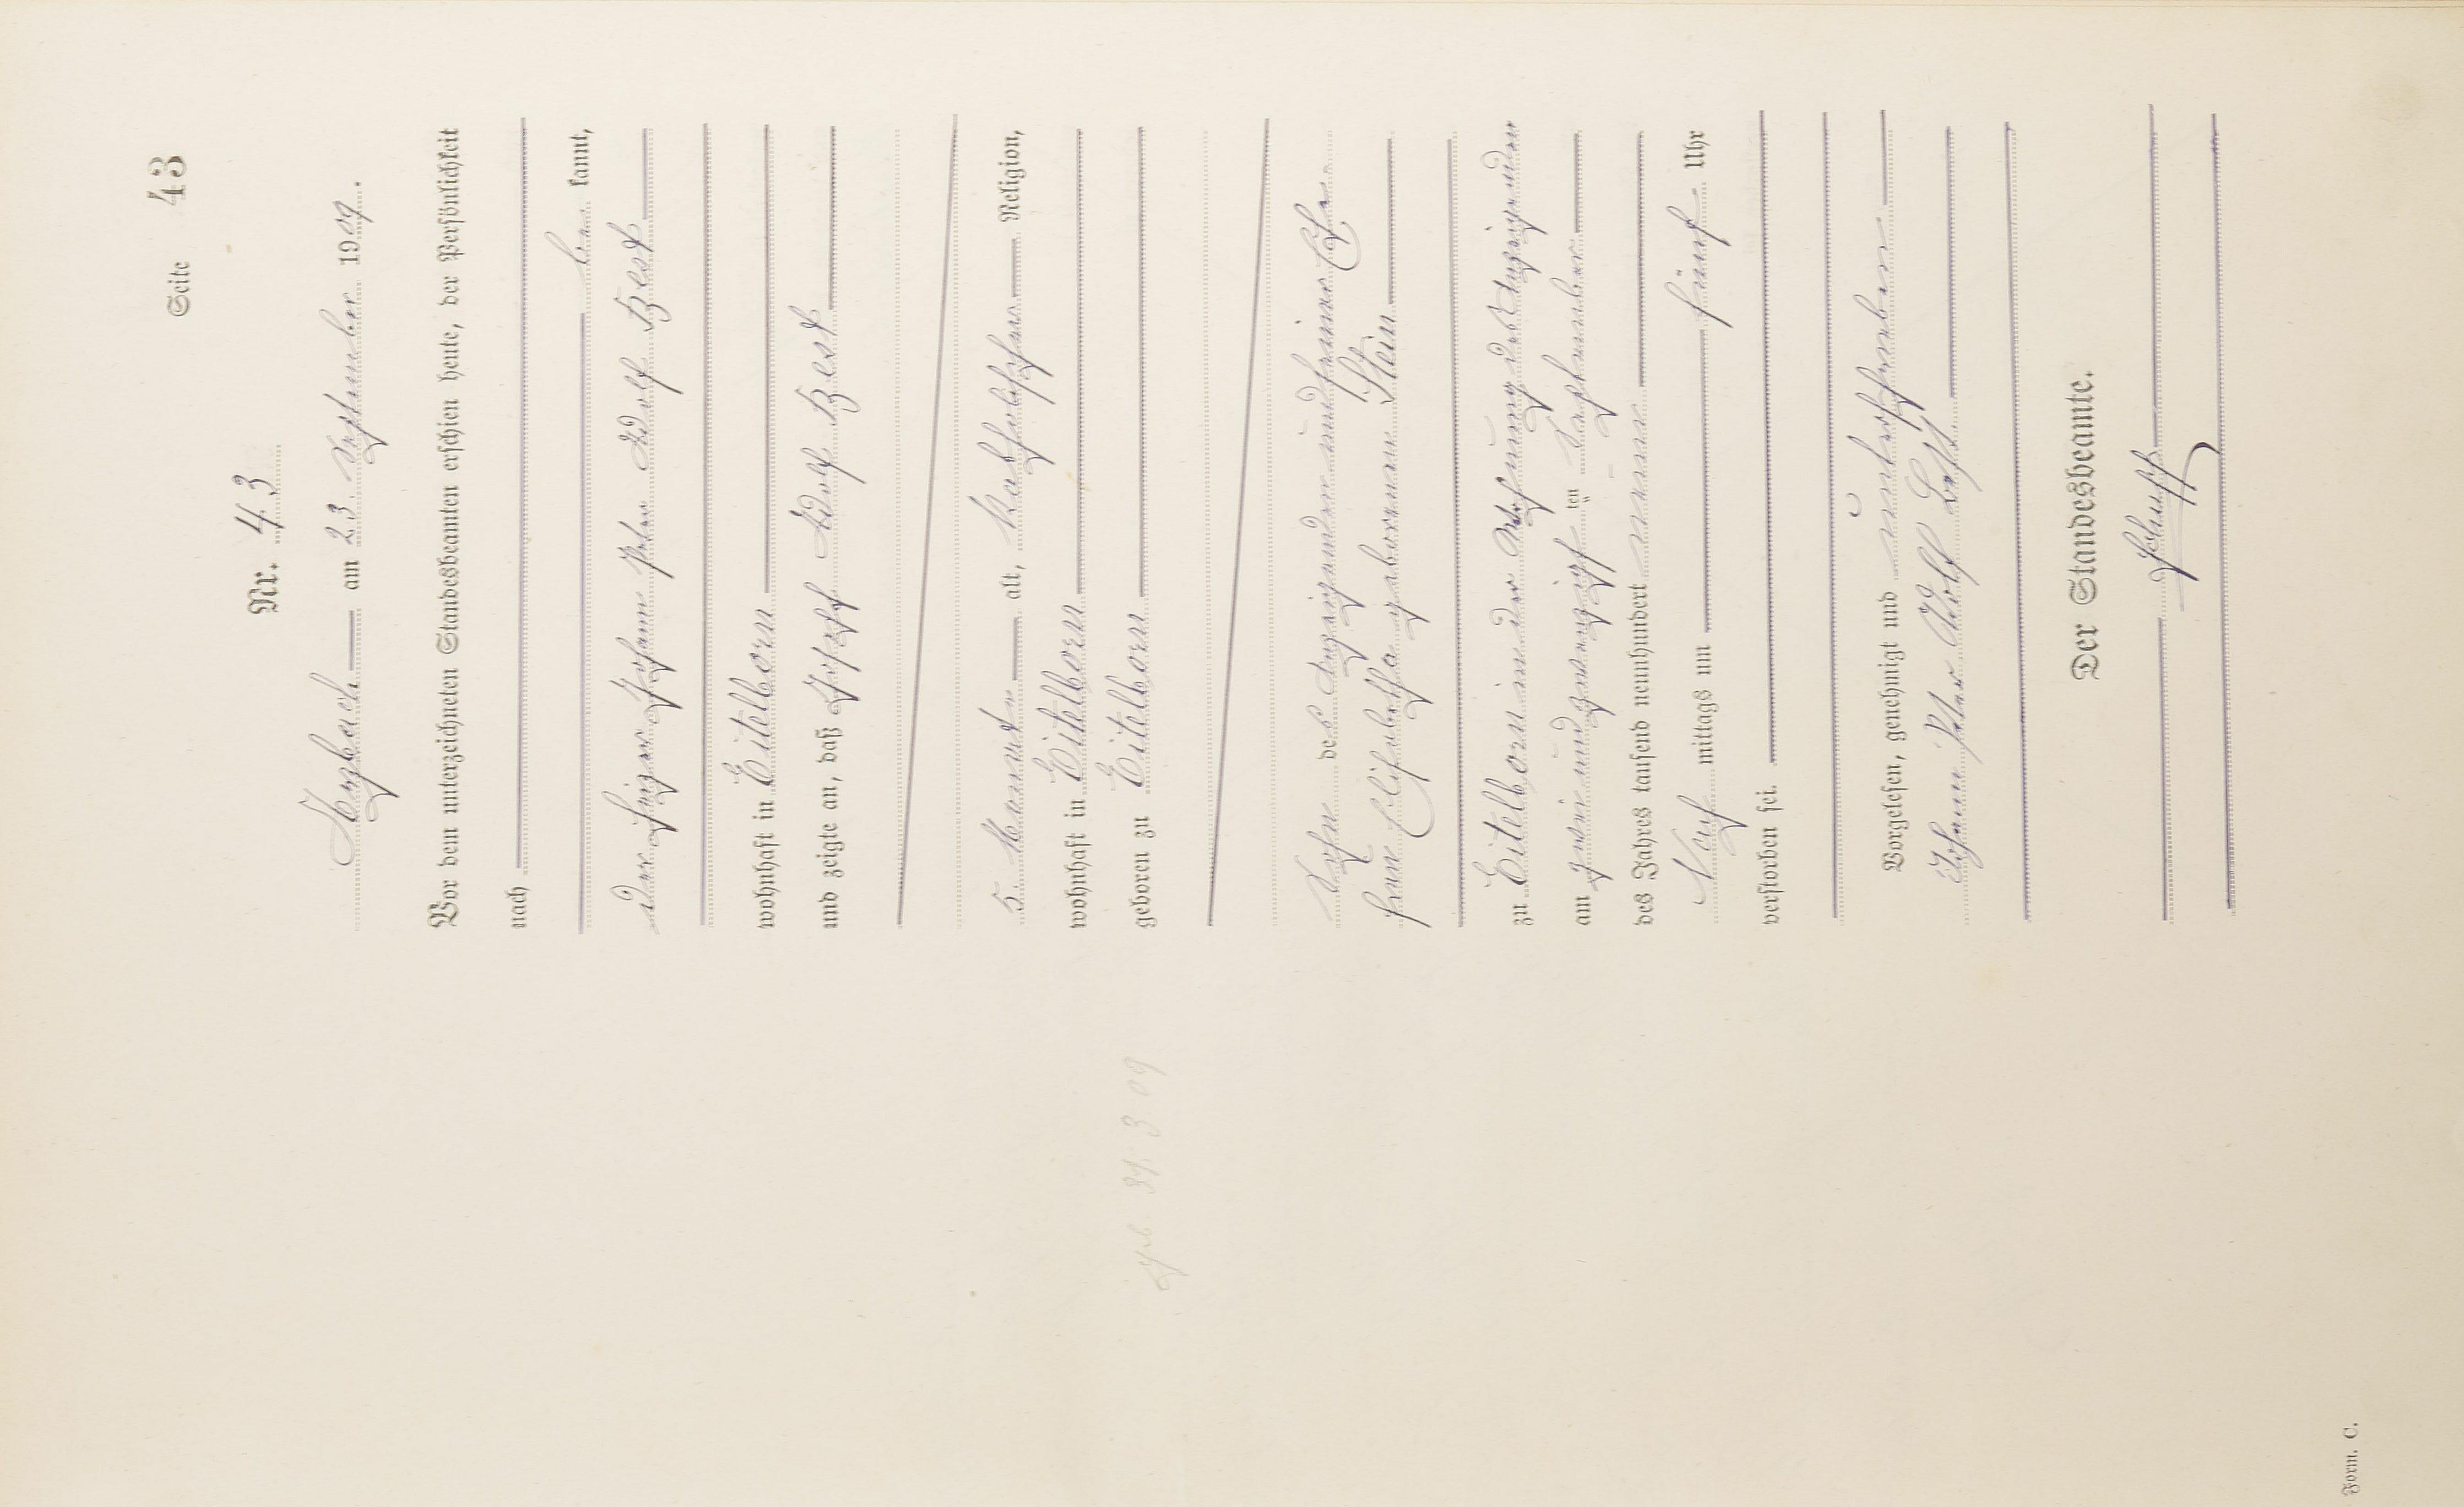 Seite 43
Nr. 43
Arzbach am 23. September 1909.
Vor dem unterzeichneten Standesbeamten erschien heute, der Persönlichkeit
nach
be kannt,
der Johann Peter Adolf Best
wohnhaft in Eitelborn
und zeigte an, daß Josef Adolf Best
5 Monate alt, katholischer Religion,
wohnhaft in Eitelborn
geboren zu Eitelborn
Sohn des Anzeigenden und seiner Ehe-
frau Elisabetha geborenen Stein
zu Eitelborn in der Wohnung des Anzeigenden
am zwei und zwanzigsten September
des Jahres tausend neunhundert neun
Nach mittags um fünf Uhr
verstorben sei.
Vorgelesen, genehmigt und unterschrieben
Johann Peter Adolf Best
Der Standesbeamte.
geb. 3 09
Form. C.